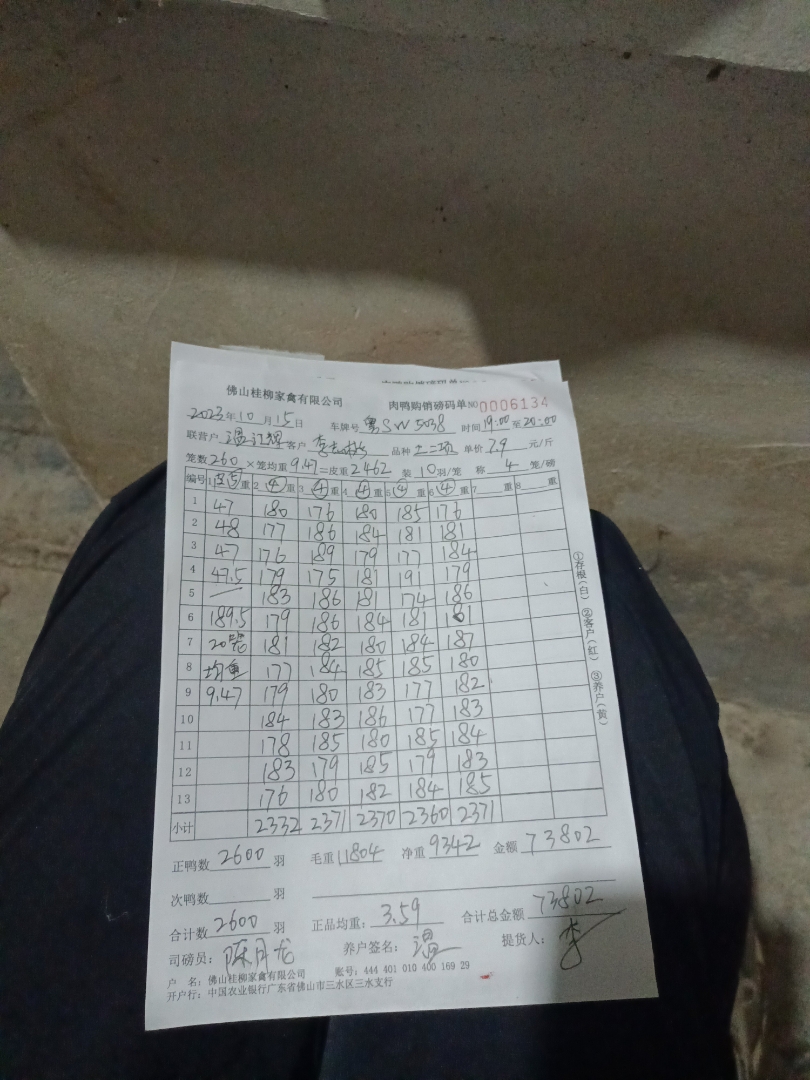 佛山桂柳家禽有限公司 肉鸭购销磅码单 NO 0006134
2023年10月15日 车牌号 粤SW5038 时间19:00至20:00
联营户 客户 李 品种 单价7.9元/斤
笼数260×笼均重9.47=皮重2462 装10羽/笼 称4笼/磅
编号 1 重 2 ④ 重 3 ④ 重 4 ④ 重 5 ④ 重 6 ④ 重 7 重 8 重
1 47 180 176 180 185 176
2 48 177 186 184 181 181
3 47 176 189 179 177 184
4 47.5 179 175 181 191 179
5 — 183 186 181 174 186
6 189.5 179 186 184 181 181
7 20笼 181 182 180 184 187
8 均重 177 184 185 185 180
9 9.47 179 180 183 177 182
10 184 183 186 177 183
11 178 185 180 185 184
12 183 179 185 179 183
13 176 180 182 184 185
小计 2332 2371 2370 2360 2371
①存根(白) ②客户(红) ③养户(黄)
正鸭数 2600 羽 毛重 11804 净重 9342 金额 73802
次鸭数 羽
合计数 2600 羽 正品均重: 3.59 合计总金额 73802
司磅员: 陈月龙 养户签名: 温 提货人: 李
户 名: 佛山桂柳家禽有限公司 账号: 444 401 010 400 169 29
开户行: 中国农业银行广东省佛山市三水区三水支行